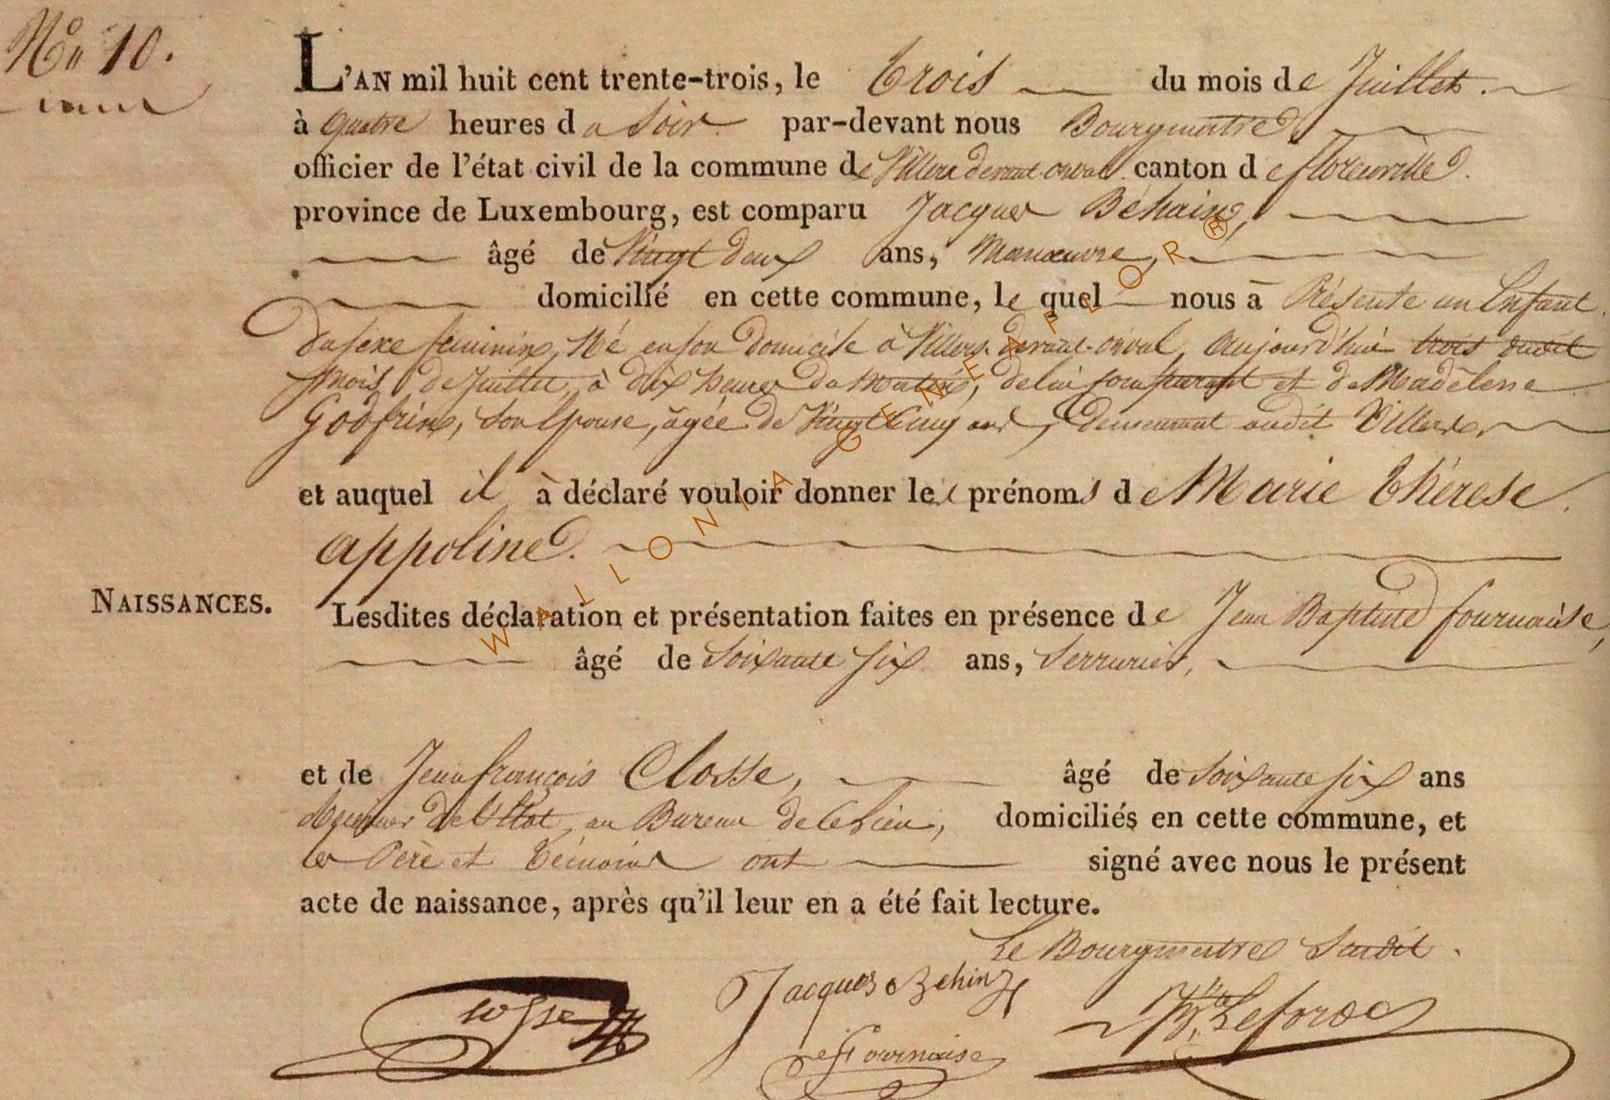 No 10.
L'AN mil huit cent trente-trois, le trois du mois de Juillet.
à quatre heures du Soir par-devant nous Bourgmestre
officier de l'état civil de la commune de Villers devant orval canton de florenville.
province de Luxembourg, est comparu Jacques Béhain,
âgé de Vingt deux ans, Manœuvre,
domicilié en cette commune, le quel nous à Présenté un Enfant
du sexe féminin, Né en son domicile à Villers-devant-orval, aujourd'hui trois dudit
mois de Juillet, à dix heures du Matin, de lui comparant et de Madelene
Godfrin, son Epouse, âgée de Vingt Cinq ans, demeurant audit Villers
et auquel il à déclaré vouloir donner les prénoms de Marie thérese
appoline.
NAISSANCES.
Lesdites déclaration et présentation faites en présence de Jean Baptiste fournaise,
âgé de Soixante six ans, Serrurier,
et de Jean françois Closse, âgé de Soixante six ans
de l'Etat, au Bureau de domiciliés en cette commune, et
les Père et témoins ont signé avec nous le présent
acte de naissance, après qu'il leur en a été fait lecture.
Le Bourgmestre Susdit.
Closse Jacques Behin
Fournaise
WALLONIA GENEAFLOR®